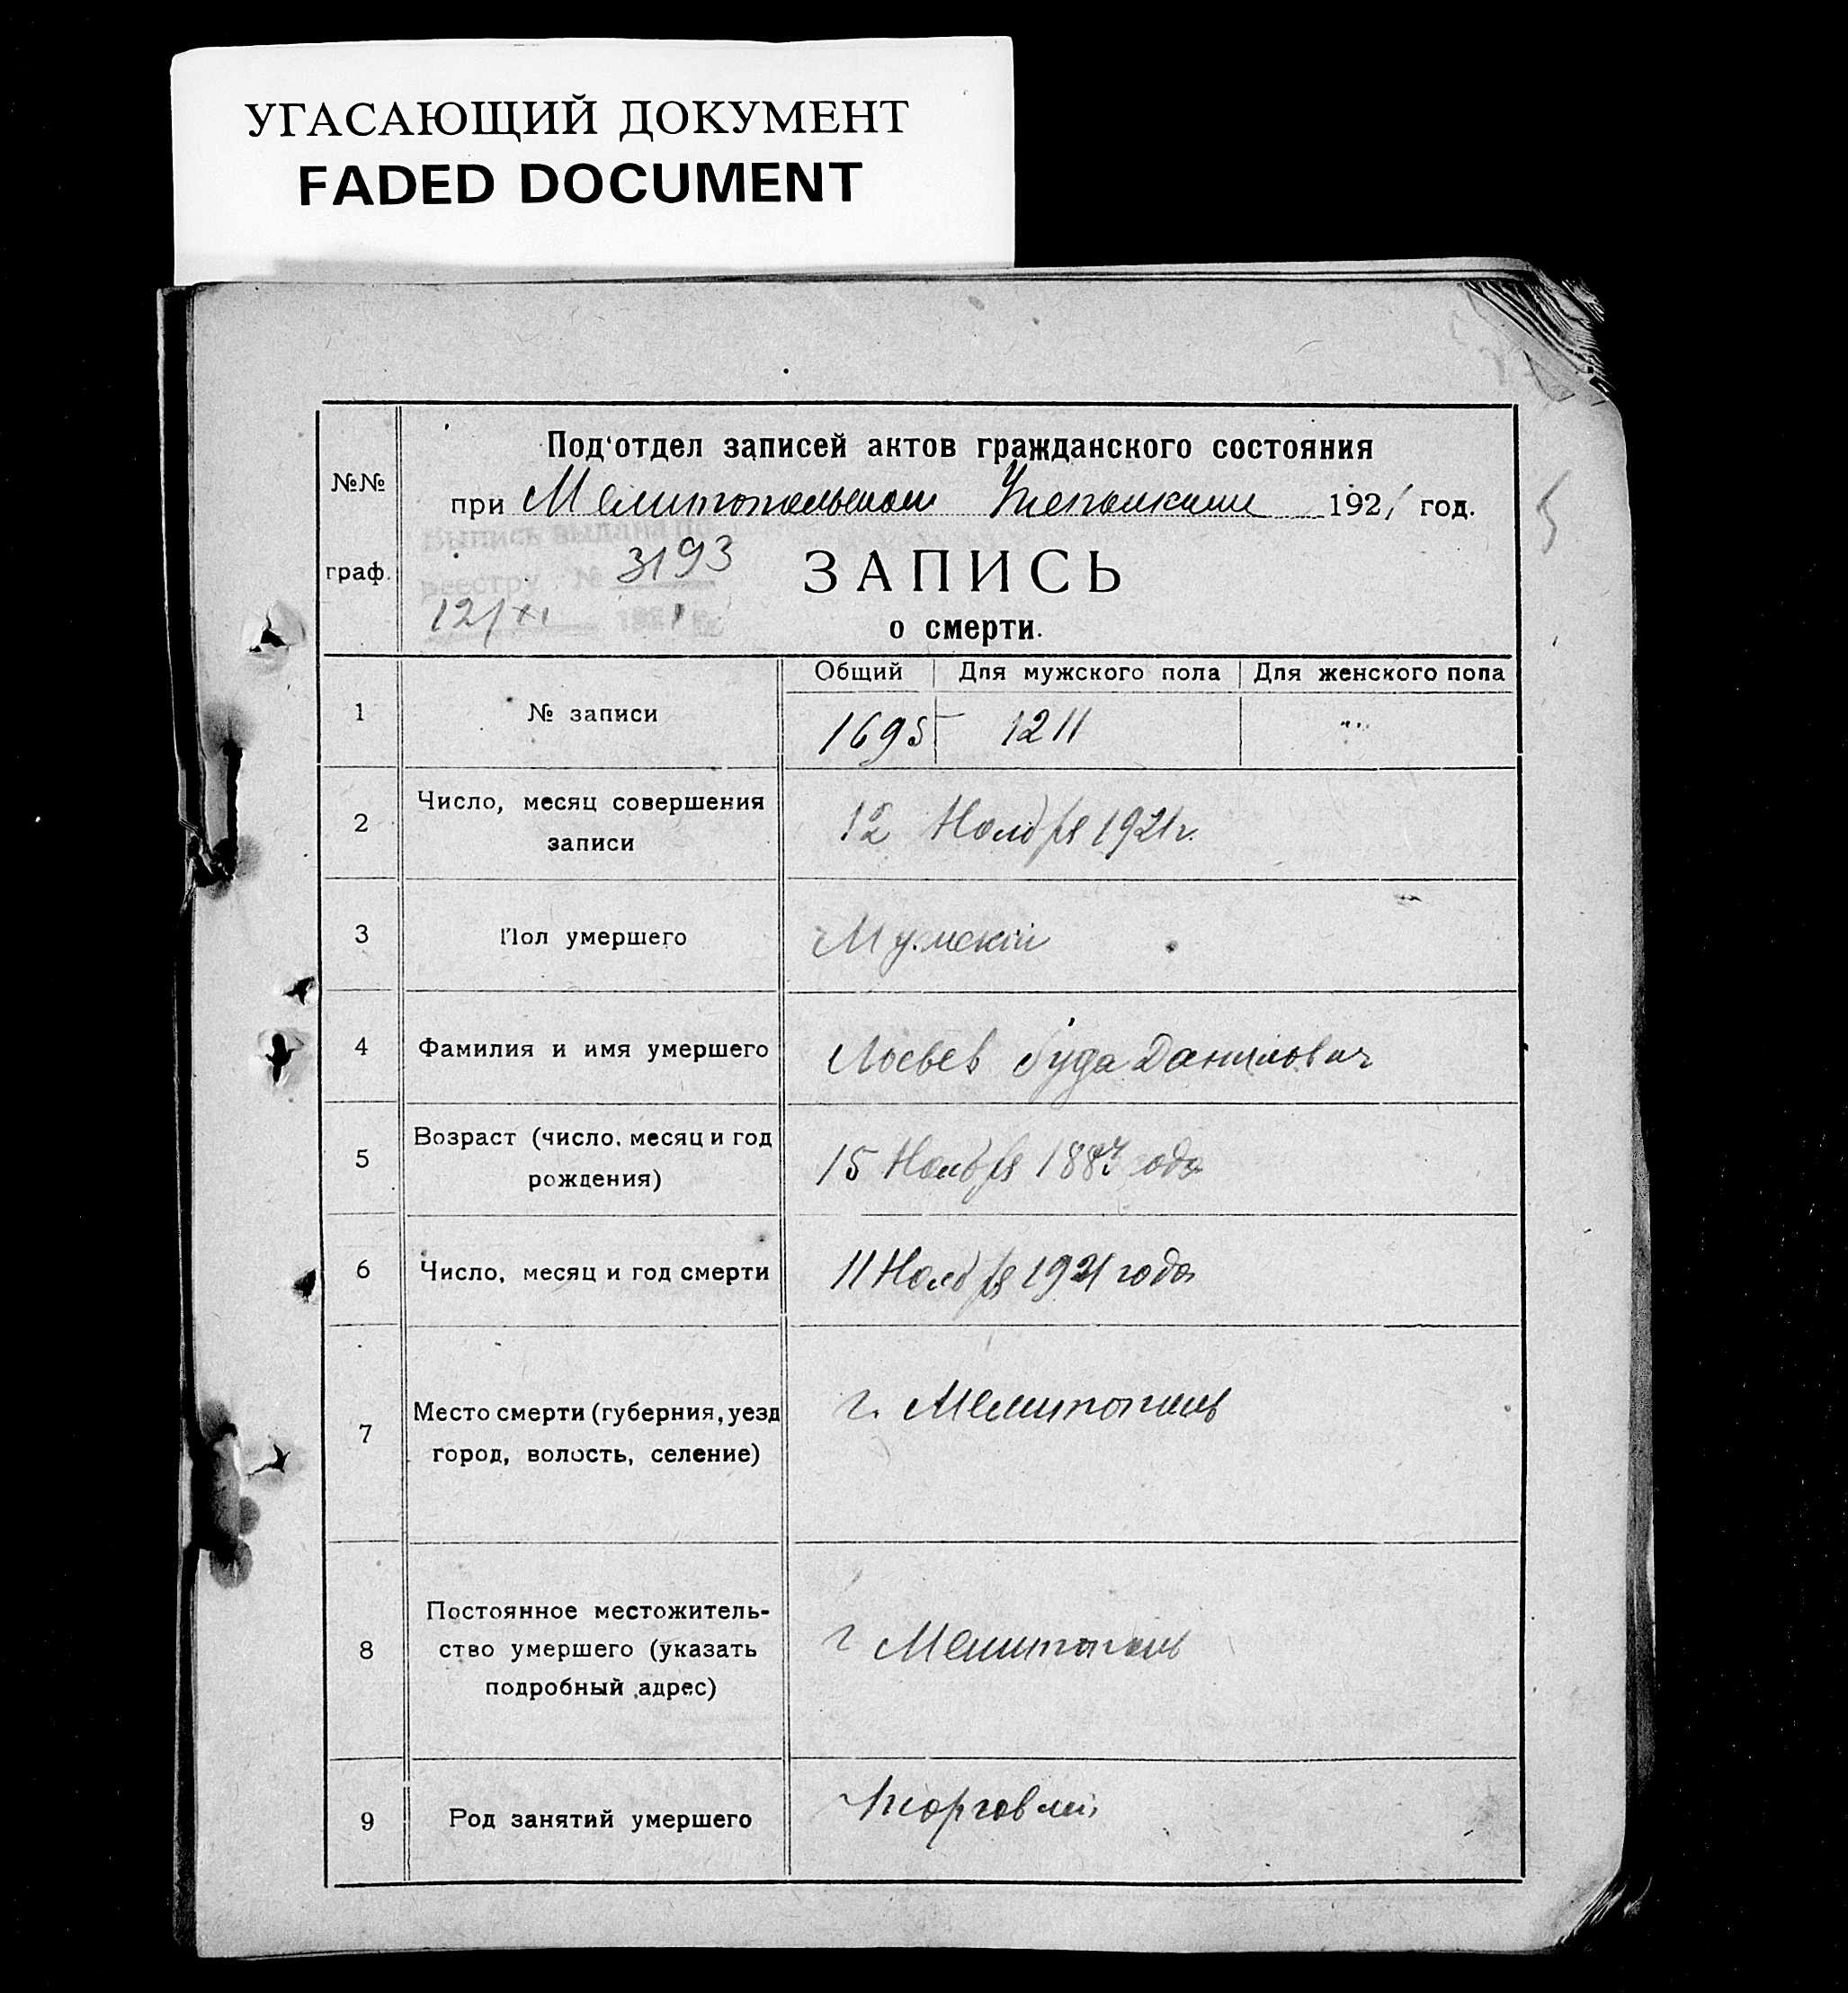 УГАСАЮЩИЙ ДОКУМЕНТ
FADED DOCUMENT
№№
граф.
Под'отдел записей актов гражданского состояния
при Мелитопольском 1921 год.
Выпись выдана по
реестру № 3193
12/XI 1921 г.
ЗАПИСЬ
о смерти.
Общий Для мужского пола Для женского пола
1 № записи 1695 1211 "
2 Число, месяц совершения
записи
12 Ноября 1921 г.
3 Пол умершего Мужской
4 Фамилия и имя умершего Данилович
5 Возраст (число, месяц и год
рождения)
15 Ноября года
6 Число, месяц и год смерти 11 Ноября 1921 года
7 Место смерти (губерния, уезд
город, волость, селение)
г. Мелитополь
8 Постоянное местожитель-
ство умершего (указать
подробный адрес)
г Мелитополь
9 Род занятий умершего